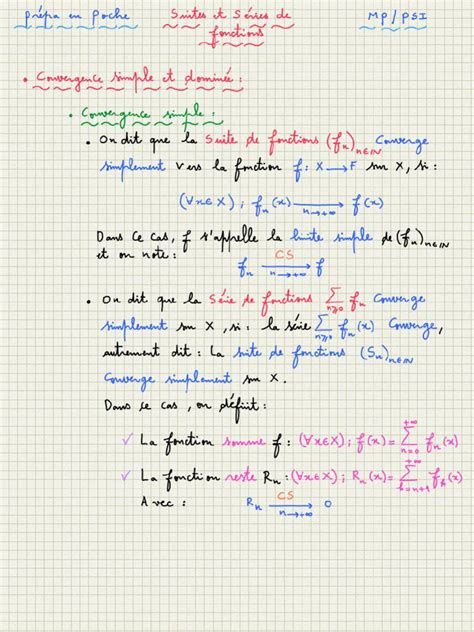 prépa en Poche Suites et Séries de fonctions MP/PSI
• Convergence simple et dominée :
• Convergence simple :
• On dit que la Suite de fonctions (fₙ)ₙ∈ℕ Converge
simplement vers la fonction f : X → F sur X, si :
(∀x∈X) ; fₙ(x) ⟶ f(x)
n→+∞
Dans ce cas, f s'appelle la limite simple de (fₙ)ₙ∈ℕ
et on note :
CS
fₙ ⟶ f
n→+∞
• On dit que la Série de fonctions ∑ fₙ Converge
n≥0
simplement sur X, si : la série ∑ fₙ(x) Converge,
n≥0
autrement dit : La suite de fonctions (Sₙ)ₙ∈ℕ
Converge simplement sur X.
Dans ce cas, on définit :
✓ La fonction somme f : (∀x∈X) ; f(x) = ∑ fₙ(x)
+∞
n=0
✓ La fonction reste Rₙ : (∀x∈X) ; Rₙ(x) = ∑ fₖ(x)
+∞
k=n+1
Avec : Rₙ ⟶ 0
CS
n→+∞